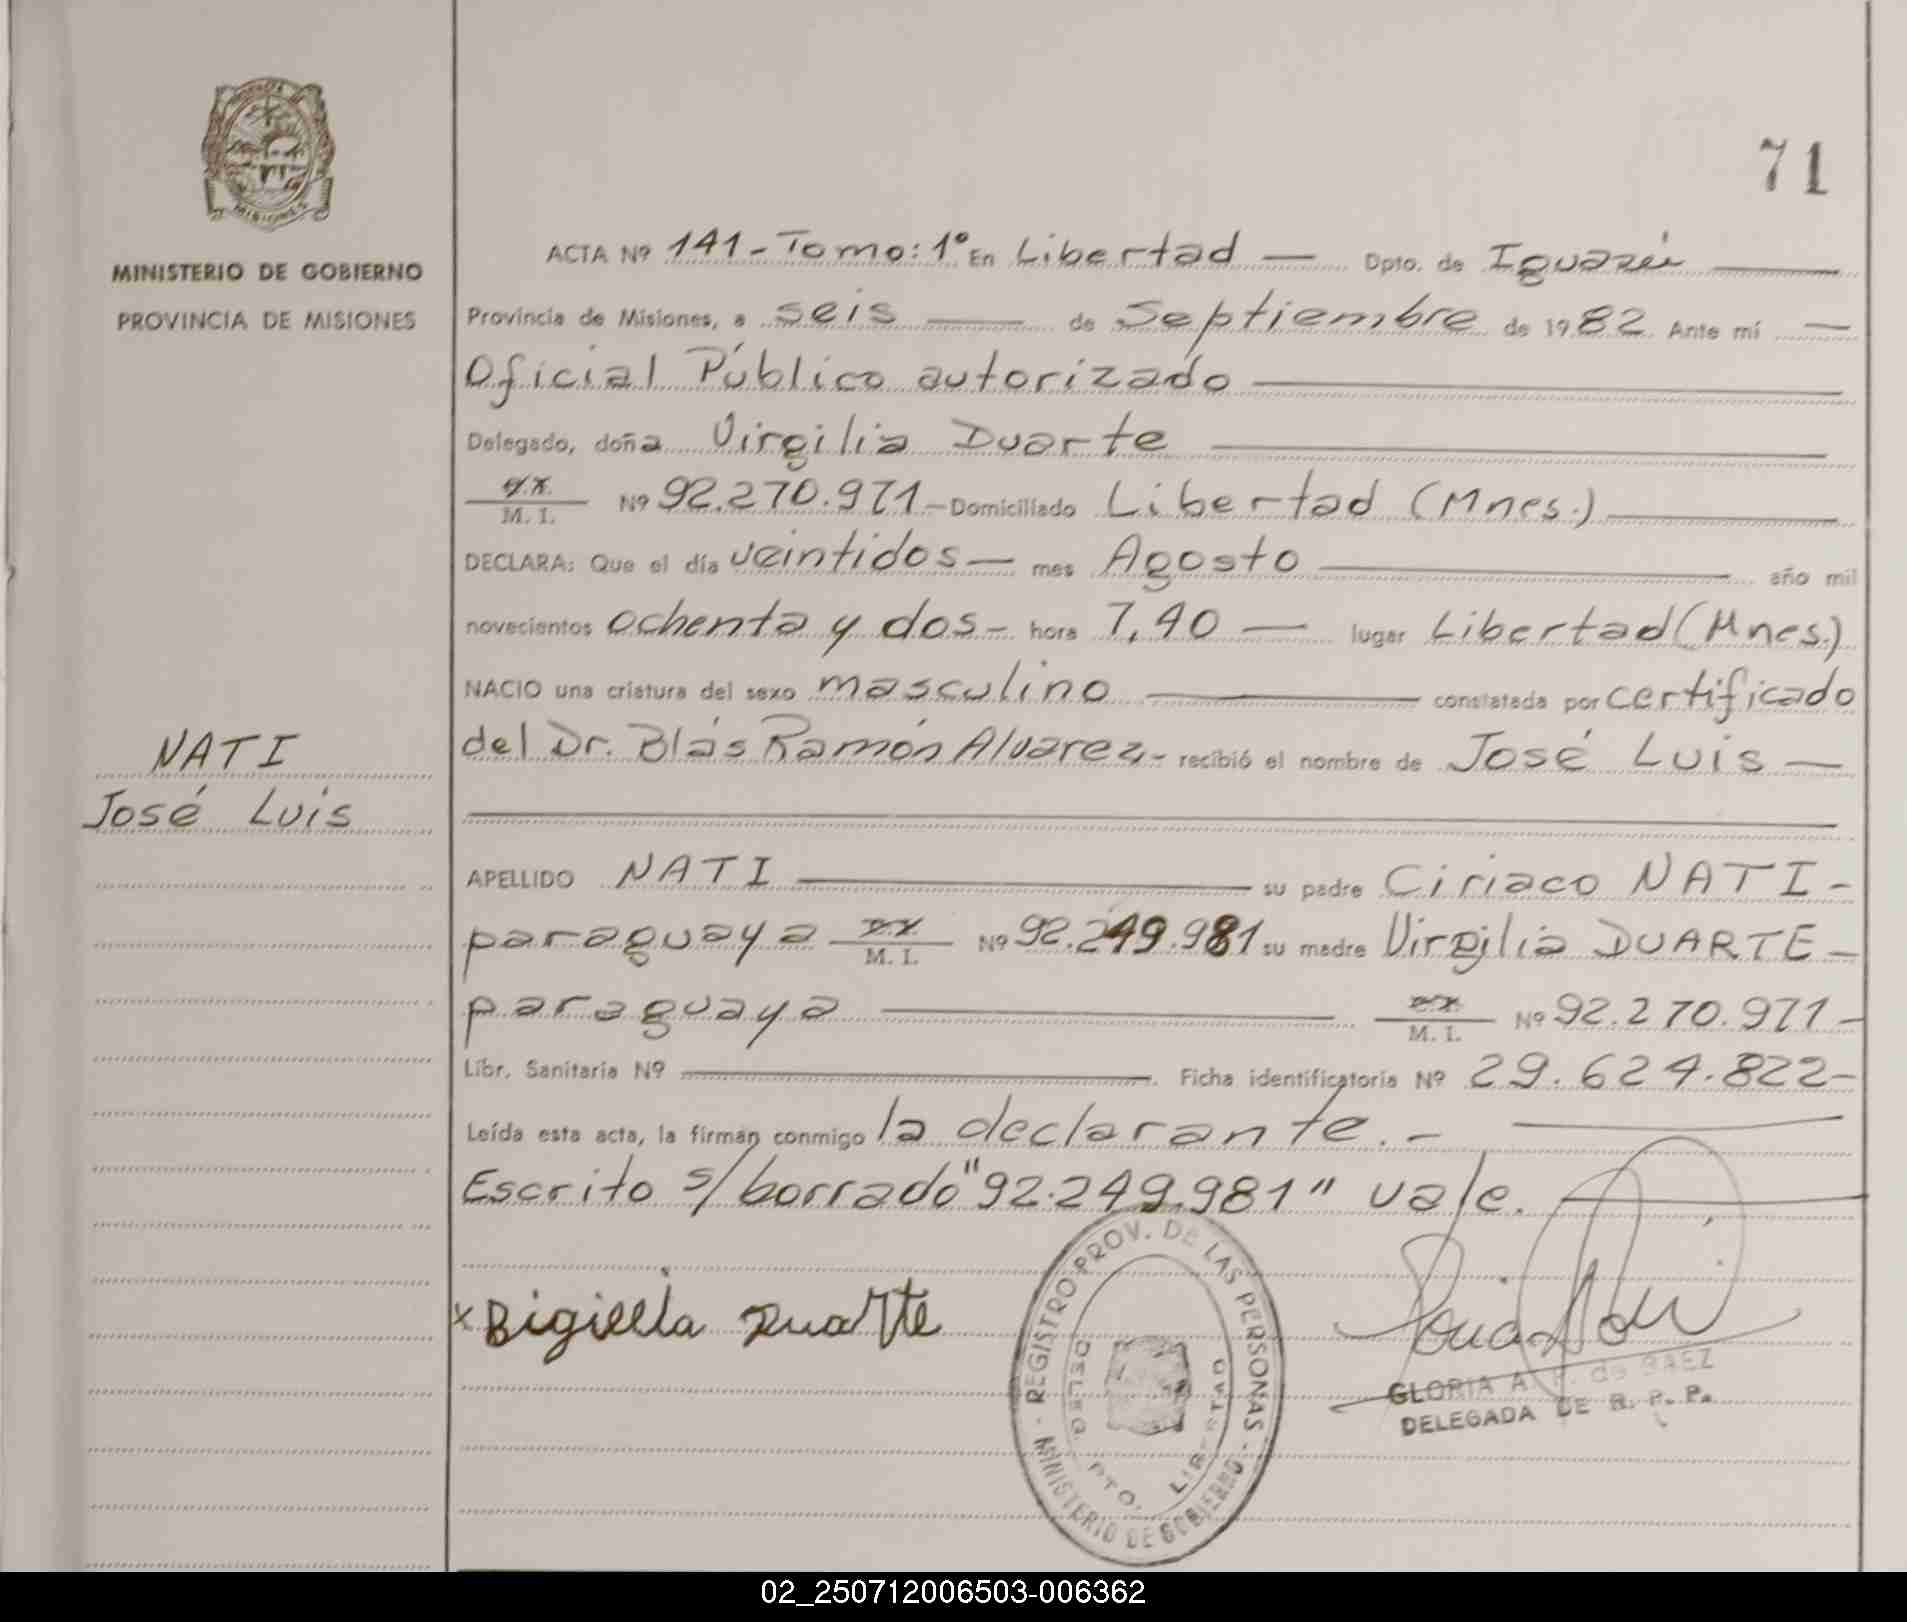 71
MINISTERIO DE GOBIERNO
PROVINCIA DE MISIONES
MISIONES
ACTA Nº 141 - Tomo: 1º En Libertad — Dpto. de Iguazú —
Provincia de Misiones, a seis — de Septiembre de 1982 Ante mí —
Oficial Público autorizado —
Delegado, doña Virgilia Duarte —
M. I. Nº 92.270.971 - Domiciliado Libertad (Mnes.) —
DECLARA: Que el día veintidos — mes Agosto — año mil
novecientos ochenta y dos - hora 7,40 — lugar Libertad (Mnes.)
NACIO una criatura del sexo masculino — constatada por certificado
del Dr. Blás Ramón Alvarez - recibió el nombre de José Luis —
NATI
José Luis
APELLIDO NATI — su padre Ciriaco NATI -
paraguaya M. I. Nº 92.249.981 su madre Virgilia DUARTE -
paraguaya — M. I. Nº 92.270.971 -
Libr. Sanitaria Nº — Ficha identificatoria Nº 29.624.822 -
Leída esta acta, la firman conmigo la declarante. - —
Escrito s/borrado "92.249.981" vale. —
x Bigiella Duarte
REGISTRO PROV. DE LAS PERSONAS - MINISTERIO DE GOBIERNO -
DELEG. LIBERTAD
PTO.
GLORIA A. de BAEZ
DELEGADA DE R. P. P.
02_250712006503-006362